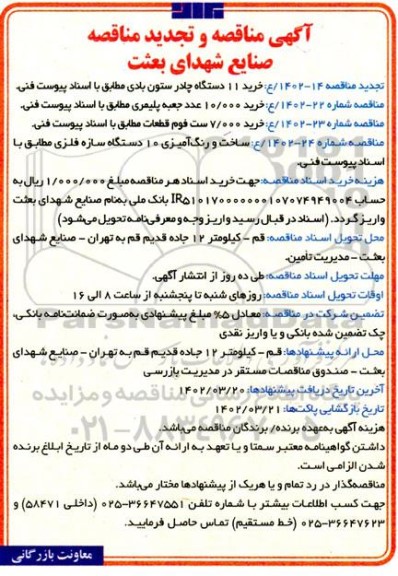 آگهی مناقصه و تجدید مناقصه
صنایع شهدای بعثت
تجدید مناقصه ۱۴-۱۴۰۲/ع: خرید ۱۱ دستگاه چادر ستون بادی مطابق با اسناد پیوست فنی.
مناقصه شماره ۲۲-۱۴۰۲/ع: خرید ۱۰/۰۰۰ عدد جعبه پلیمری مطابق با اسناد پیوست فنی.
مناقصه شماره ۲۳-۱۴۰۲/ع: خرید ۷/۰۰۰ ست فوم قطعات مطابق با اسناد پیوست فنی.
مناقصه شماره ۲۴-۱۴۰۲/ع: ساخت و رنگ‌آمیزی ۱۰ دستگاه سازه فلزی مطابق با
اسناد پیوست فنی.
هزینه خرید اسناد مناقصه: جهت خرید اسناد هر مناقصه مبلغ ۱/۰۰۰/۰۰۰ ریال به
حساب IR۵۱۰۱۷۰۰۰۰۰۰۰۱۰۷۰۷۴۹۴۹۰۰۴ بانک ملی به‌نام صنایع شهدای بعثت
واریز گردد. (اسناد در قبال رسید واریز وجه و معرفی‌نامه تحویل می‌شود)
محل تحویل اسناد مناقصه: قم - کیلومتر ۱۲ جاده قدیم قم به تهران - صنایع شهدای
بعثت - مدیریت تأمین.
مهلت تحویل اسناد مناقصه: طی ده روز از انتشار آگهی.
اوقات تحویل اسناد مناقصه: روزهای شنبه تا پنجشنبه از ساعت ۸ الی ۱۶
تضمین شرکت در مناقصه: معادل ۵% مبلغ پیشنهادی به‌صورت ضمانت‌نامه بانکی،
چک تضمین شده بانکی و یا واریز نقدی
محل ارائه پیشنهادها: قم - کیلومتر ۱۲ جاده قدیم قم به تهران - صنایع شهدای
بعثت - صندوق مناقصات مستقر در مدیریت بازرسی
آخرین تاریخ دریافت پیشنهادها: ۱۴۰۲/۰۳/۲۰
تاریخ بازگشایی پاکت‌ها: ۱۴۰۲/۰۳/۲۱
هزینه آگهی به‌عهده برنده/ برندگان مناقصه می‌باشد.
داشتن گواهینامه معتبر سمتا و یا تعهد به ارائه آن طی دو ماه از تاریخ ابلاغ برنده
شدن الزامی است.
مناقصه‌گذار در رد تمام و یا هریک از پیشنهادها مختار می‌باشد.
جهت کسب اطلاعات بیشتر با شماره تلفن ۳۶۶۴۷۵۵۱-۰۲۵ (داخلی ۵۸۴۷۱) و
۳۶۶۴۷۶۲۳-۰۲۵ (خط مستقیم) تماس حاصل فرمایید.
معاونت بازرگانی